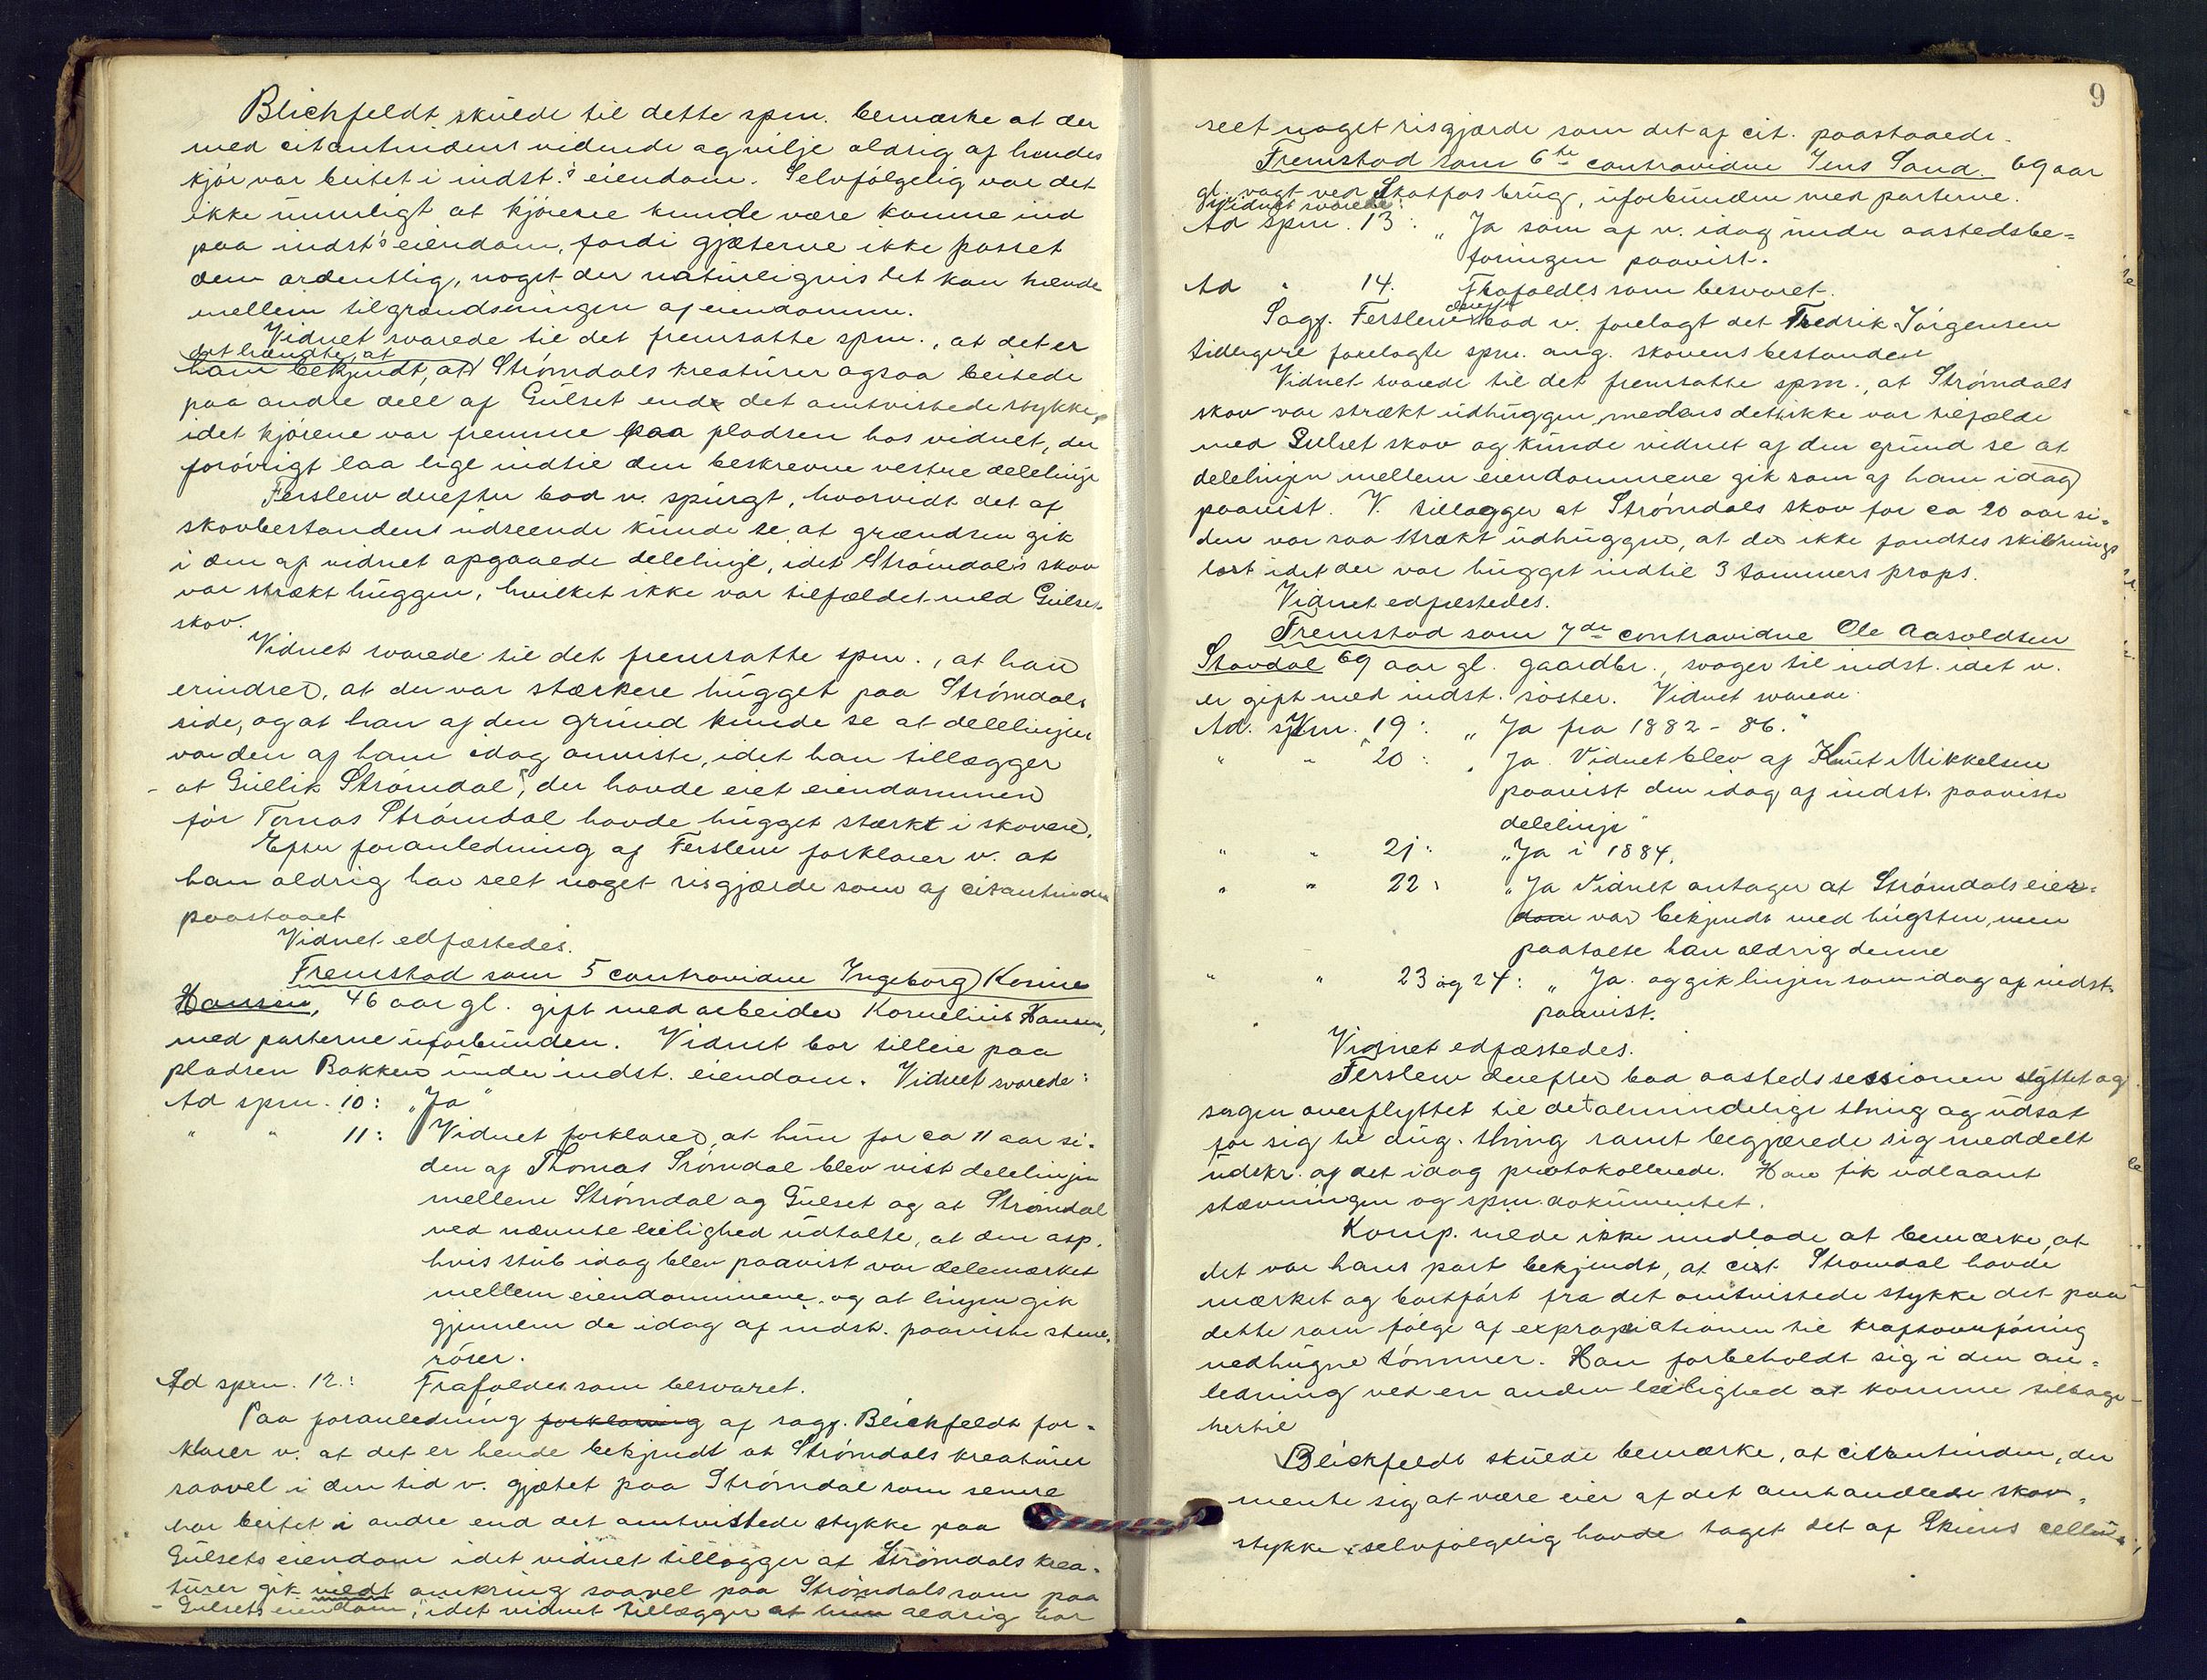 Blichfeldt skulde til dette spm. bemærke at der
med citantindens vidende og vilje aldrig af hendes
kjör var beitet i indst.'s eiendom. Selvfölgelig var det
ikke umuligt at kjörene kunde være komne ind
paa indst's eiendom, fordi gjæterne ikke passet
dem ordentlig, noget der naturligvis let kan hænde
mellem tilgrændsningen af eiendomme.
Vidnet svarede til det fremsatte spm., at det er
det hændte, at
ham bekjendt, at Strömdals kreaturer ogsaa beitede
paa andre dele af Gulset end det omtvistede stykke,
idet kjörene var fremme paa pladsen hos vidnet, der
forövrigt laa lige indtil den beskrevne vestre delelinje
Ferslew derefter bad v. spurgt, hvorvidt det af
skovbestandens udseende kunde se, at grændsen gik
i den af vidnet opgaaede delelinje, idet Strömdals skov
var stærkt huggen, hvilket ikke var tilfældet med Gulset
skov.
Vidnet svarede til det fremsatte spm., at han
erindred, at der var stærkere hugget paa Strömdals
side, og at han af den grund kunde se at delelinjen
var den af ham idag anviste, idet han tillægger
at Gullik Strömdal, der havde eiet eiendommen
för Tomas Strömdal havde hugget stærkt i skoven.
Efter foranledning af Ferslew forklarer v. at
han aldrig har seet noget risgjærde som af citantinden
paastaaet
Vidnet edfæstedes.
Fremstod som 5 contravidne Ingeborg Korine
Hansen, 46 aar gl. gift med arbeider Kornelius Hansen,
med parterne uforbunden. Vidnet bor tilleie paa
pladsen Bakken under indst. eiendom. Vidnet svarede:
Ad spm. 10: „Ja"
" " 11: Vidnet forklared, at hun for ca 11 aar si-
den af Thomas Srömdal blev vist delelinjen
mellem Strömdal og Gulset og at Strömdal
ved nævnte leilighed udtalte, at den asp,
hvis stub idag blev paavist var delemærket
mellem eiendommene, og at linjen gik
gjennem de idag af indst. paaviste stene-
röser.
Ad spm. 12.: Frafaldes som besvaret.
Paa foranledning forklaring af sagf. Blichfeldt for-
klarer v. at det er hende bekjendt at Strömdals kreaturer
saavel i den tid v. gjætet paa Strömdal som senere
har beitet i andre end det omtvistede stykke paa
Gulsets eiendom idet vidnet tillægger at Strömdals krea-
turer gik vildt omkring saavel paa Strömdals som paa
Gulsets eiendom, idet vidnet tillægger at hun aldrig har
9
seet noget risgjærde som det af cit. paastaaede.
Fremstod som 6te contravidne Jens Sand. 69 aar
gl. vagt ved Skotfos brug, uforbunden med parterne.
Vidnet svarede:
Ad spm. 13: „Ja som af v. idag under aastedsbe-
faringen paavist.
Ad " 14. Frafaldes som besvaret.
Sagf. Ferslew derefter bad v. forelagt det Fredrik Jörgensen
tidligere forelagte spm. ang. skovens bestanden
Vidnet svarede til det fremsatte spm., at Strömdals
skov var strækt udhuggen, medens dette ikke var tilfælde
med Gulset skov og kunde vidnet af den grund se at
delelinjen mellem eiendommene gik som af ham idag
paavist. V. tillægger at Strömdals skov for ca 20 aar si-
den var saa strækt udhuggen, at der ikke fandtes skibnings
last idet der var hugget indtil 3 tommers props.
Vidnet edfæstedes.
Fremstod som 7de contravidne Ole Aasoldsen
Stavdal 69 aar gl. gaardbr., svoger til indst. idet v.
er gift med indst. söster. Vidnet svarede
Ad. spm. 19: „Ja fra 1882 - 86."
" " 20: „Ja. Vidnet blev af Knut Mikkelsen
paavist den idag af indst. paaviste
delelinje"
" " 21: „Ja i 1884.
" " 22: „Ja Vidnet antager at Strömdals eier-
dom var bekjendt med hugsten, men
paatalte han aldrig denne
" " 23 og 24: „Ja. og gik linjen som idag af indst.
paavist.
Vidnet edfæstedes.
Ferslew derefter bad aastedssessionen slyttet og
sagen overflyttet til det almindelige thing og udsat
for sig til aug. thing samt begjærede sig meddelt
udskr. af det idag protokollerede. Han fik udlaant
stævningen og spm. dokumentet.
Komp. vilde ikke undlade at bemærke, at
det var hans part bekjendt, at cit. Strömdal havde
mærket og bortfört fra det omtvistede stykke det paa
dette som fölge af expropiationen til kraftoverföring
nedhugne tömmer. Han forbeholdt sig i den an-
ledning ved en anden leilighed at komme tilbage
hertil
Blickfeldt skulde bemærke, at citantinden, der
mente sig at være eier af det omhandlede skov-
stykke selvfölgelig havde taget det af Skiens cellu-